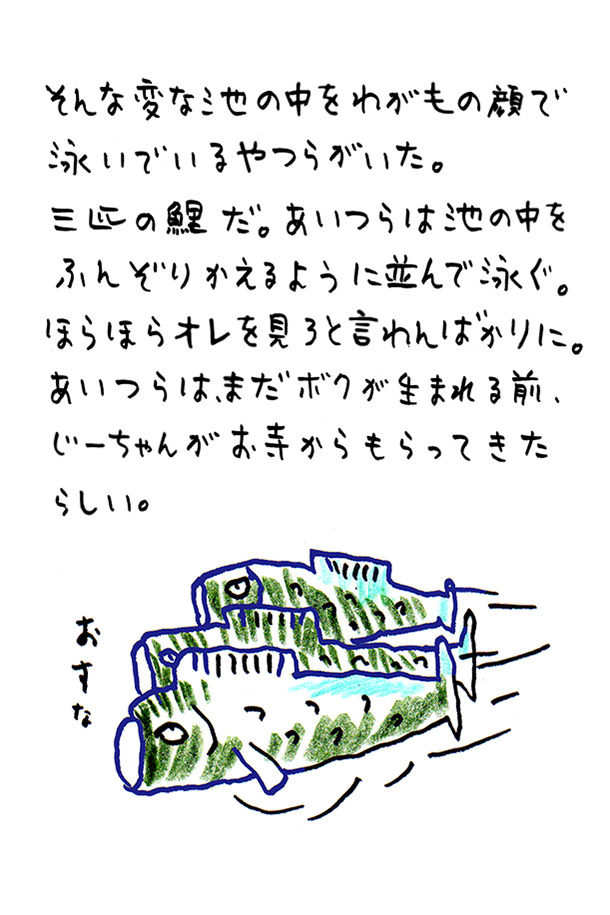 そんな変な池の中をわがもの顔で
泳いでいるやつらがいた。
三匹の鯉だ。あいつらは池の中を
ふんぞりかえるように並んで泳ぐ。
ほらほらオレを見ろと言わんばかりに。
あいつらは、まだボクが生まれる前、
じーちゃんがお寺からもらってきた
らしい。
おすな